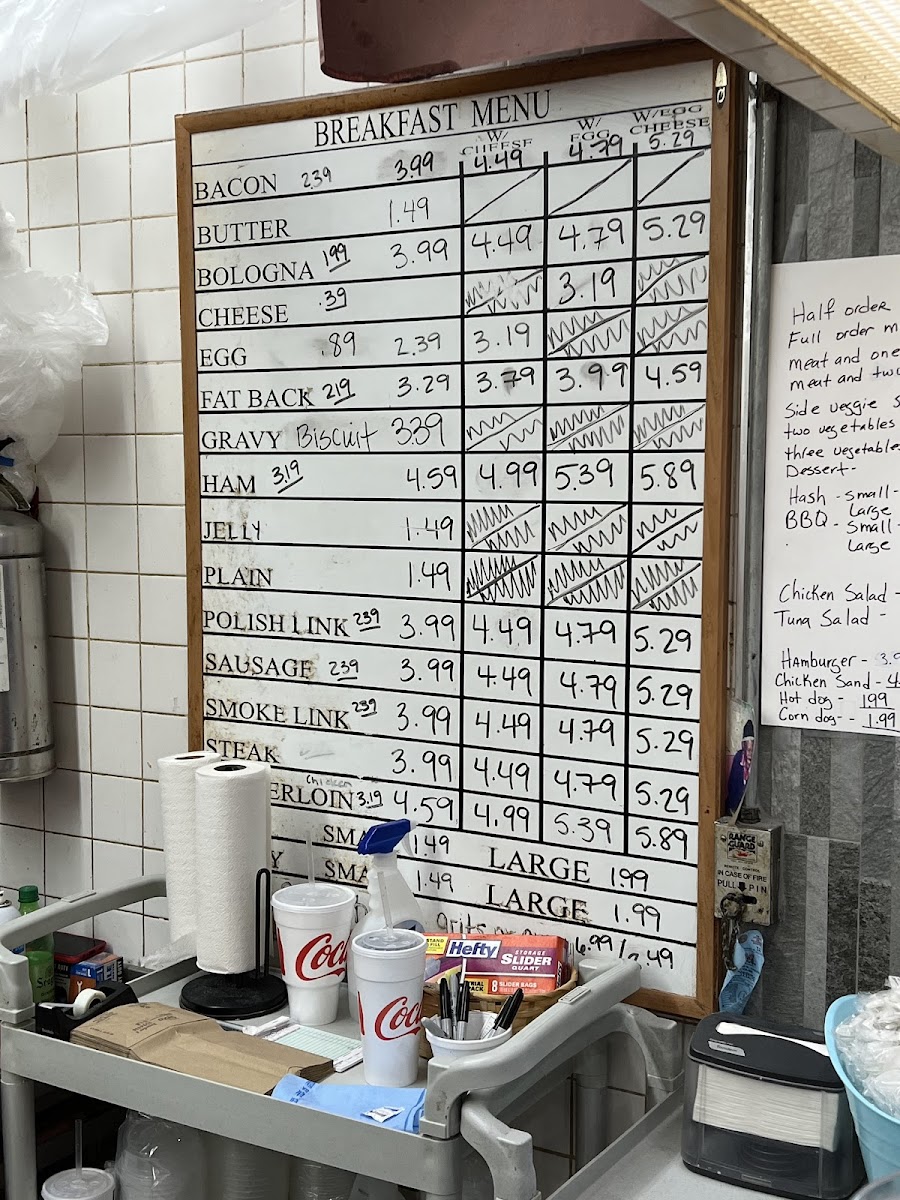 BREAKFAST MENU
W/ CHEESE W/ EGG W/EGG CHEESE
BACON 2.39 3.99 4.49 4.79 5.29
BUTTER 1.49
BOLOGNA 1.99 3.99 4.49 4.79 5.29
CHEESE .39 3.19
EGG .89 2.39 3.19
FAT BACK 2.19 3.29 3.79 3.99 4.59
GRAVY Biscuit 3.39
HAM 3.19 4.59 4.99 5.39 5.89
JELLY 1.49
PLAIN 1.49
POLISH LINK 2.39 3.99 4.49 4.79 5.29
SAUSAGE 2.39 3.99 4.49 4.79 5.29
SMOKE LINK 2.39 3.99 4.49 4.79 5.29
STEAK 3.99 4.49 4.79 5.29
Chicken
ERLOIN 3.19 4.59 4.99 5.39 5.89
SMA 1.49 LARGE 1.99
Y SMA 1.49 LARGE 1.99
grits
Half order
Full order m
meat and one
meat and tw
Side veggie s
two vegetables
three vegetables
Dessert-
Hash - small-
Large
BBQ - Small-
Large
Chicken Salad -
Tuna Salad -
Hamburger - 3.9
Chicken Sand - 4
Hot dog - 1.99
Corn dog - - 1.99
RANGE GUARD
REMOTE CONTROL
IN CASE OF FIRE
PULL PIN
STAND & FILL
Hefty
STORAGE
SLIDER
QUART
TRIAL PACK
8 SLIDER BAGS
Coca
Coca